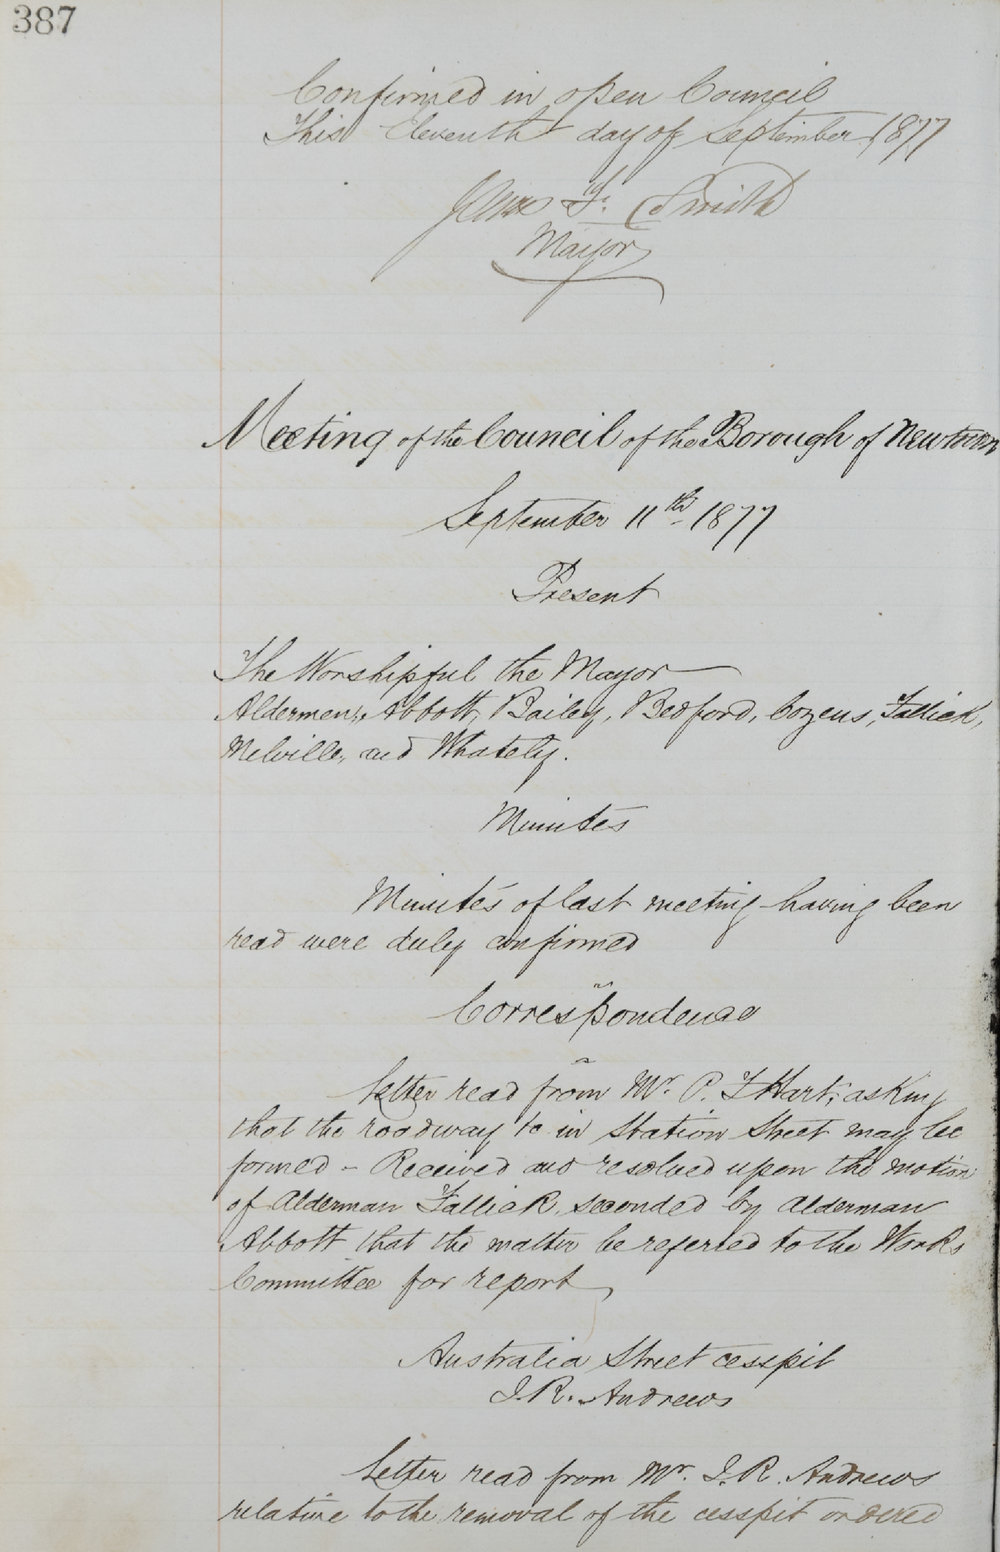 387
Confirmed in open Council
This Eleventh day of September 1877
James F. Smith
Mayor
Meeting of the Council of the Borough of Newtown
September 11th 1877
Present
The Worshipful the Mayor
Aldermen, Abbott, Bailey, Bedford, Cozens, Fallick,
Melville, and Whately.
Minutes
Minutes of last meeting having been
read were duly confirmed
Correspondence
Letter read from Mr. P. F Hart, asking
that the roadway to in Station Street may be
formed - Received and resolved upon the motion
of Alderman Fallick, seconded by Alderman
Abbott that the matter be referred to the Works
Committee for report
Australia Street cesspit
J. R. Andrews
Letter read from Mr. J. R. Andrews
relative to the removal of the cesspit ordered